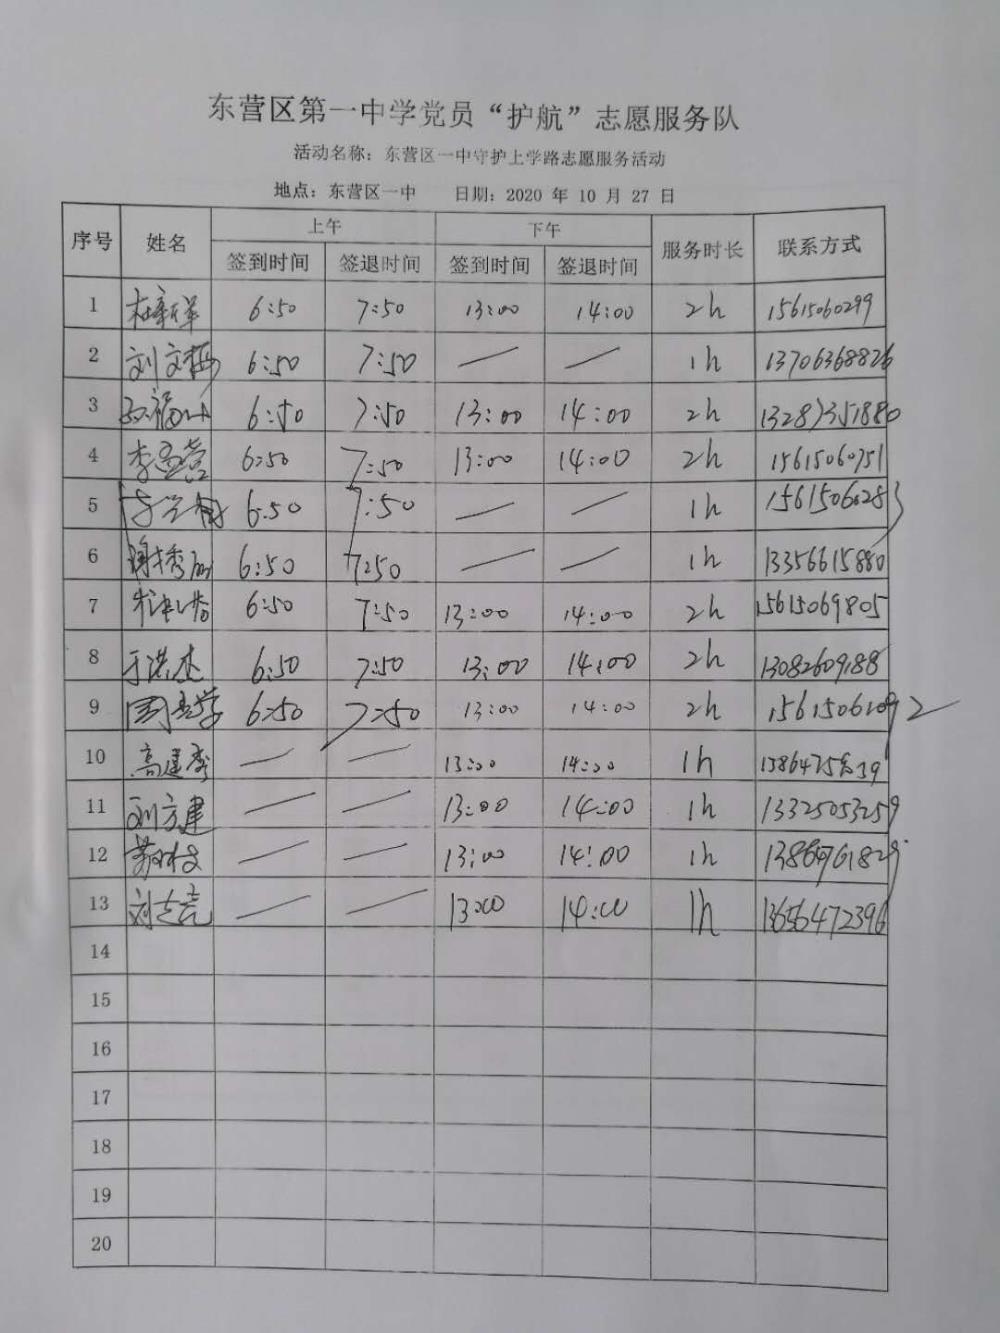 东营区第一中学党员“护航”志愿服务队
活动名称：东营区一中守护上学路志愿服务活动
地点：东营区一中 日期：2020 年 10 月 27 日
序号 姓名 上午 下午 服务时长 联系方式
签到时间 签退时间 签到时间 签退时间
1 6:50 7:50 13:00 14:00 2h 15615060299
2 刘文梅 6:50 7:50 — — 1h 13706368826
3 6:50 7:50 13:00 14:00 2h 13287351880
4 李孟营 6:50 7:50 13:00 14:00 2h 15615060751
5 6:50 7:50 — — 1h 15615060283
6 谢秀丽 6:50 7:50 — — 1h 13356615880
7 6:50 7:50 13:00 14:00 2h 15615069805
8 于洪杰 6:50 7:50 13:00 14:00 2h 13082609188
9 6:50 7:50 13:00 14:00 2h 15615061092
10 高建秀 — — 13:00 14:00 1h
11 刘方建 — — 13:00 14:00 1h 13325053259
12 — — 13:00 14:00 1h
13 刘志亮 — — 13:00 14:00 1h 13656472396
14
15
16
17
18
19
20